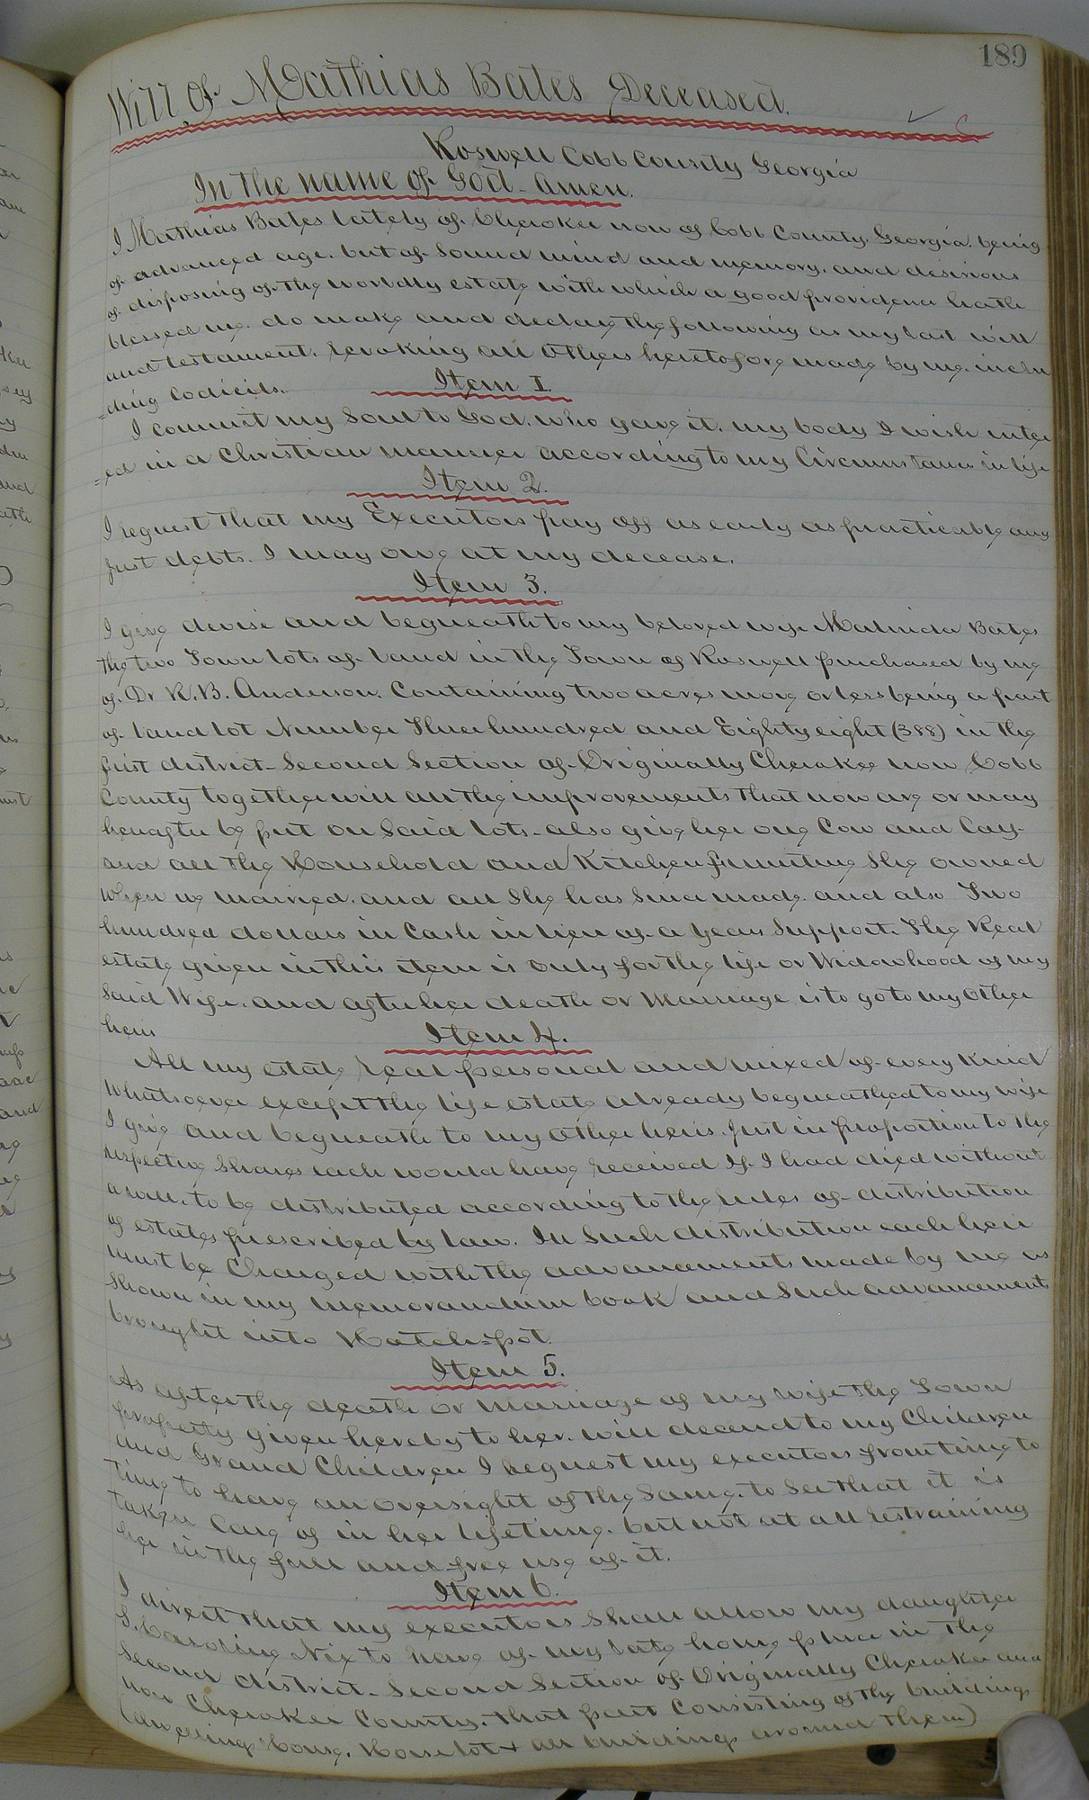 189
Will of Mathias Bates Deceased.
Roswell Cobb County Georgia
In the name of God - Amen.
I Mathias Bates lately of Cherokee now of Cobb County, Georgia, being
of advanced age, but of sound mind and memory, and desirous
of disposing of the worldly estate with which a good providence hath
blessed me, do make and declare the following as my last will
and testament, revoking all others heretofore made by me, inclu
=ding Codicils.
Item 1.
I commit my soul to God, who gave it, my body I wish inter
=ed in a Christian manner according to my Circumstances in life
Item 2.
I request that my Executors pay off as early as practicable any
just debts. I may owe at my decease.
Item 3.
I give devise and bequeath to my beloved wife Malinda Bates
the two Town lots of land in the Town of Roswell purchased by me
of Dr R.B. Anderson, Containing two acres more or less being a part
of land lot Number Three hundred and Eighty eight (388) in the
first district - Second Section of Originally Cherokee now Cobb
County together with all the improvements that now are or may
hereafter be put on said lots - also give her one Cow and Calf -
and all the Household and Kitchen furniture she owned
when we married, and all she has since made, and also Two
hundred dollars in Cash in lieu of a years support. The Real
estate given in this item is only for the life or Widowhood of my
said Wife, and after her death or Marriage is to go to my other
heirs
Item 4.
All my estate real personal and mixed of every kind
whatsoever except the life estate already bequeathed to my wife
I give and bequeath to my other heirs, just in proportion to the
respective shares each would have received if I had died without
a will, to be distributed according to the rules of distribution
of estates prescribed by law. In such distribution each heir
must be Charged with the advancements made by me as
shown in my memorandum book and such advancements
brought into Hotch-pot.
Item 5.
As after the death or Marriage of my wife the Town
property given hereby to her, will decend to my Children
and Grand Children I request my executors from time to
time to have an oversight of the same, to see that it is
taken care of in her lifetime, but not at all restraining
her in the full and free use of it.
Item 6.
I direct that my executors shall allow my daughter
S. Caroline Nix to have of my late home place in the
second district - Second Section of Originally Cherokee and
now Cherokee County, that part Consisting of the buildings
(dwelling house, Horse lot & all buildings around them)